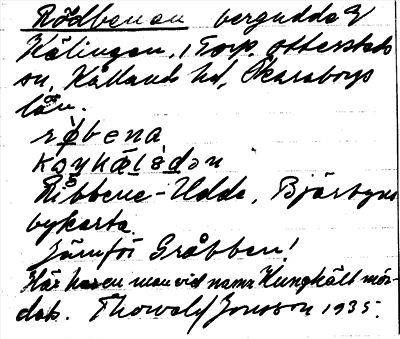 Rödbenan bergudde i
Kålingen, i Torp, Otterstads
sn, Kållands hd, Skaraborgs
län.
röbena
Ribbene-Udde, Bjärbyns
bykarta.
Jämför Gråbben!
Här haven man vid namn Kungkäll mör-
dats. Thorvald Jonsson 1935.